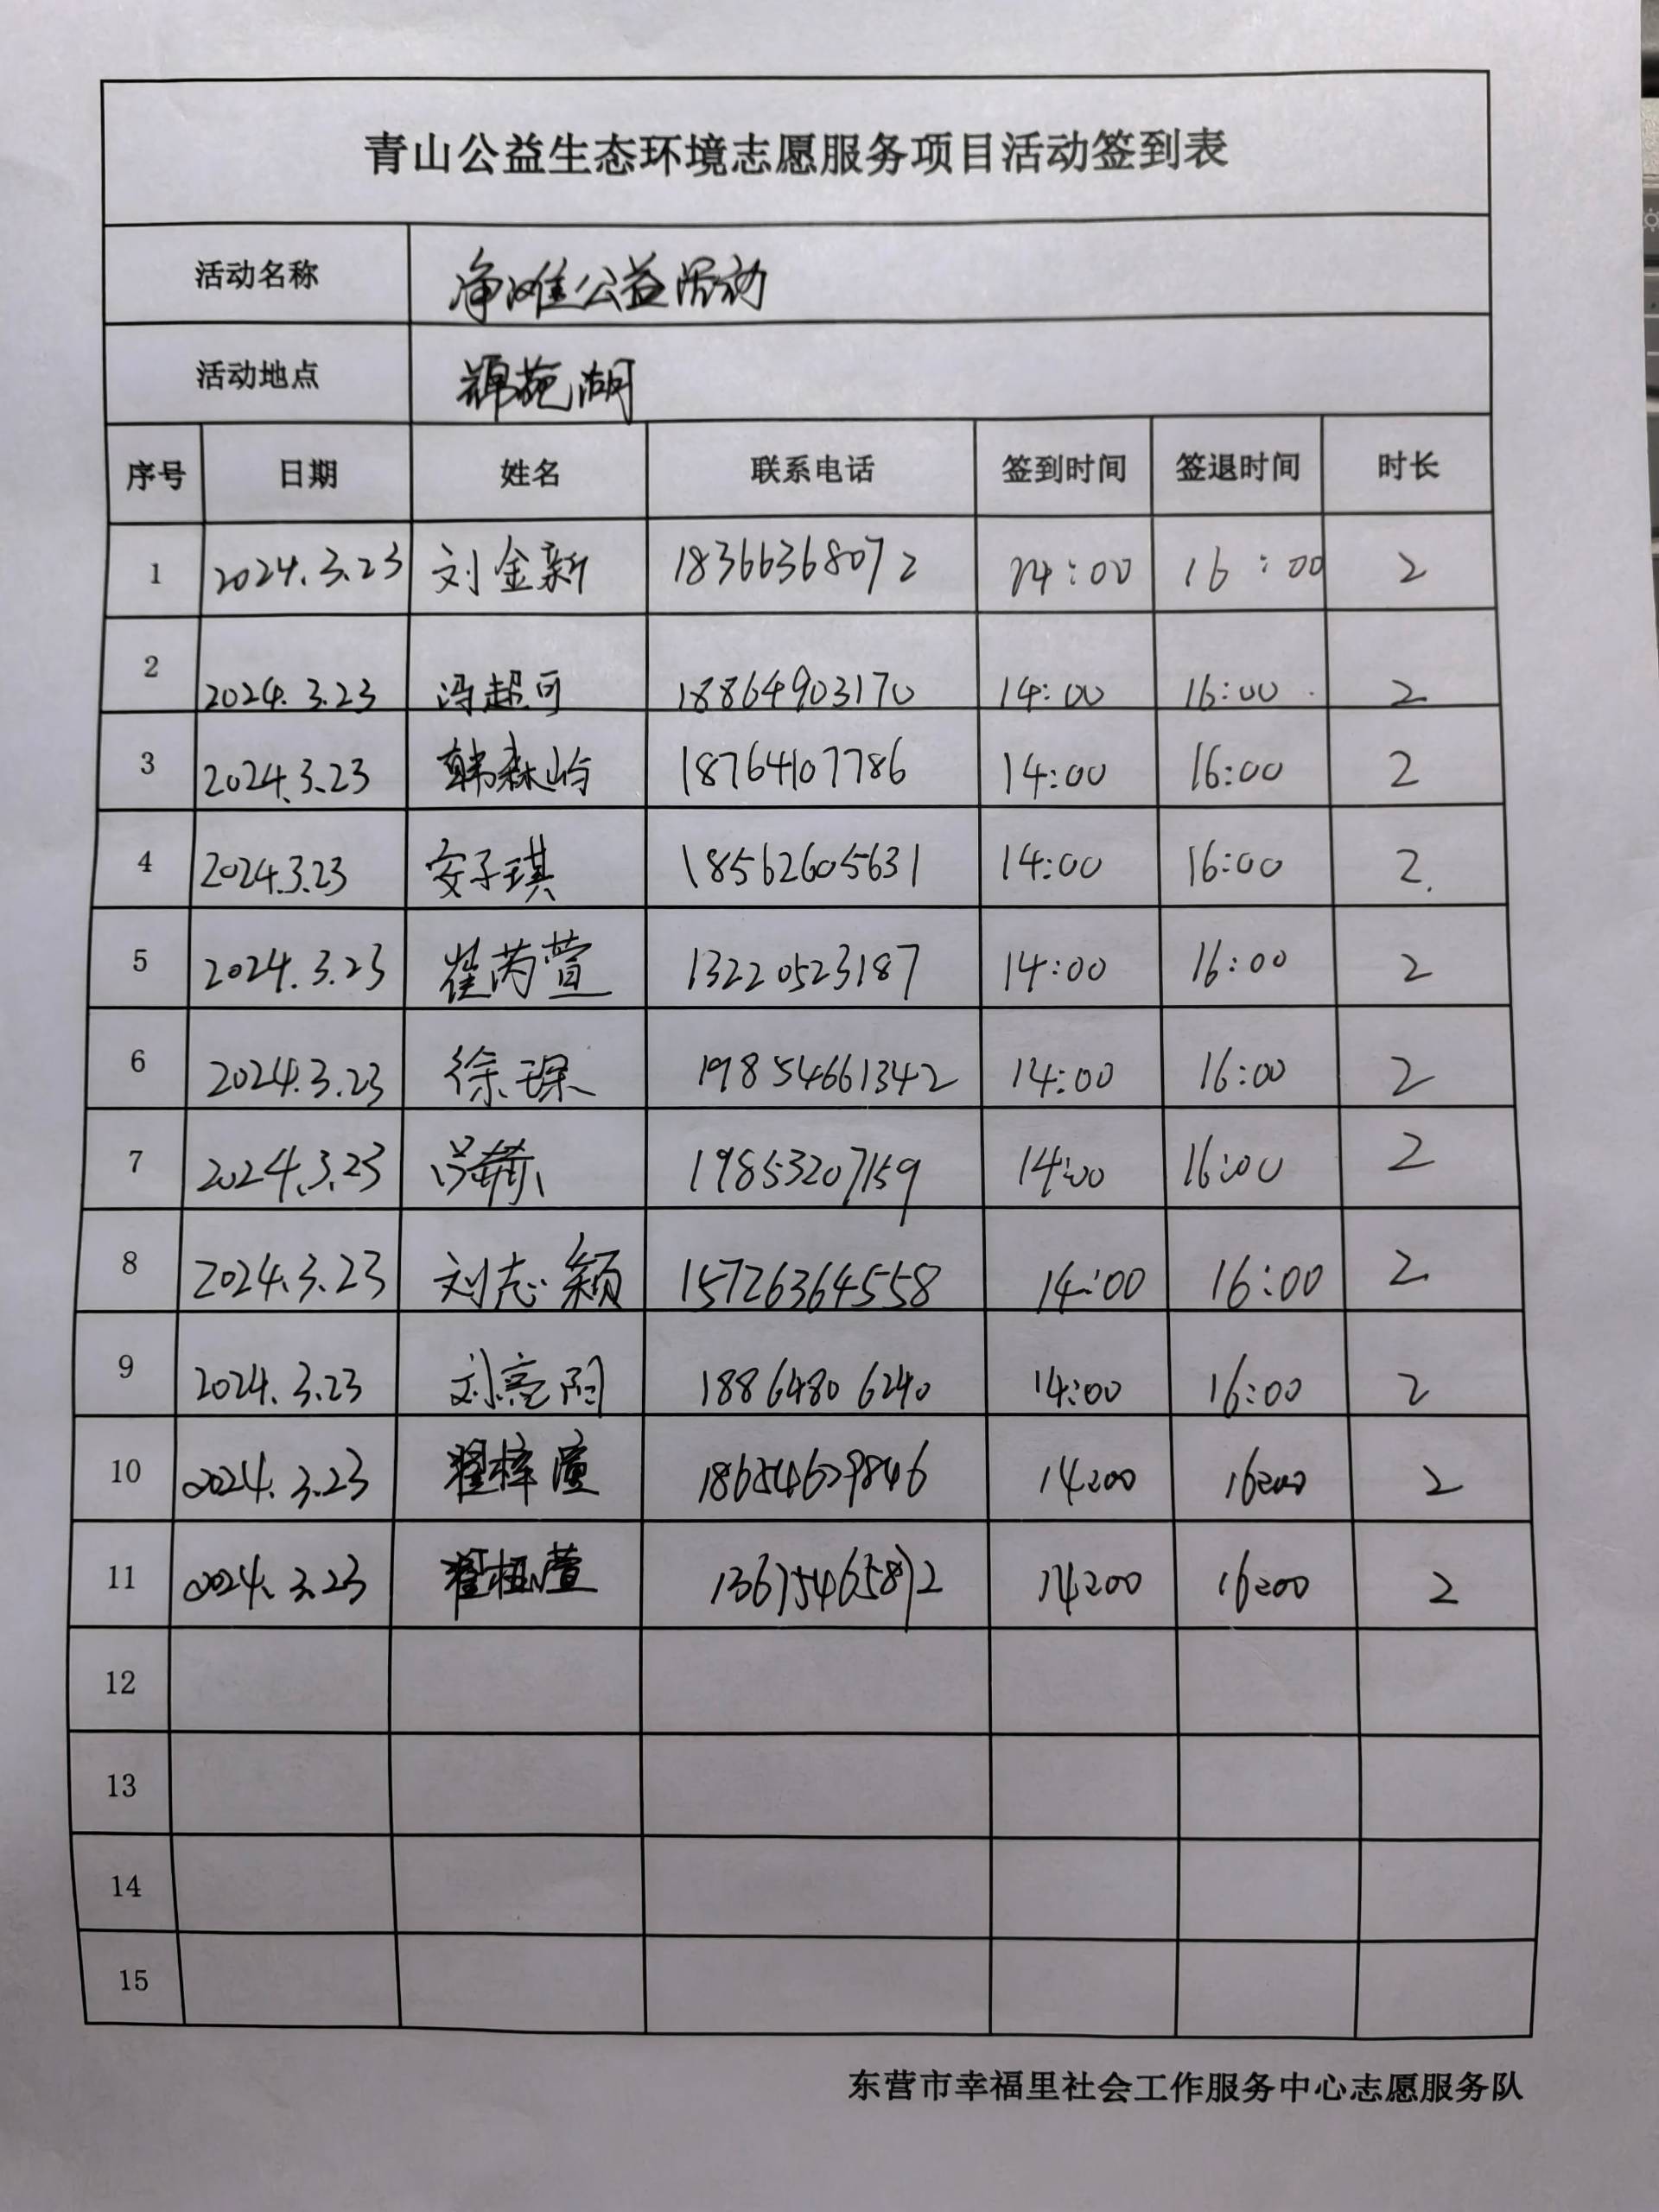 青山公益生态环境志愿服务项目活动签到表
活动名称 净滩公益活动
活动地点 锦苑湖
序号 日期 姓名 联系电话 签到时间 签退时间 时长
1 2024.3.23 刘金新 18366368072 14:00 16:00 2
2 2024.3.23 冯超可 18864903170 14:00 16:00 2
3 2024.3.23 韩森屿 18764107786 14:00 16:00 2
4 2024.3.23 安子琪 18562605631 14:00 16:00 2
5 2024.3.23 崔芮萱 13220523187 14:00 16:00 2
6 2024.3.23 徐琛 19854661342 14:00 16:00 2
7 2024.3.23 19853207159 14:00 16:00 2
8 2024.3.23 刘志颖 15726364558 14:00 16:00 2
9 2024.3.23 18864806240 14:00 16:00 2
10 2024.3.23 14:00 16:00 2
11 2024.3.23 13675465872 14:00 16:00 2
12
13
14
15
东营市幸福里社会工作服务中心志愿服务队